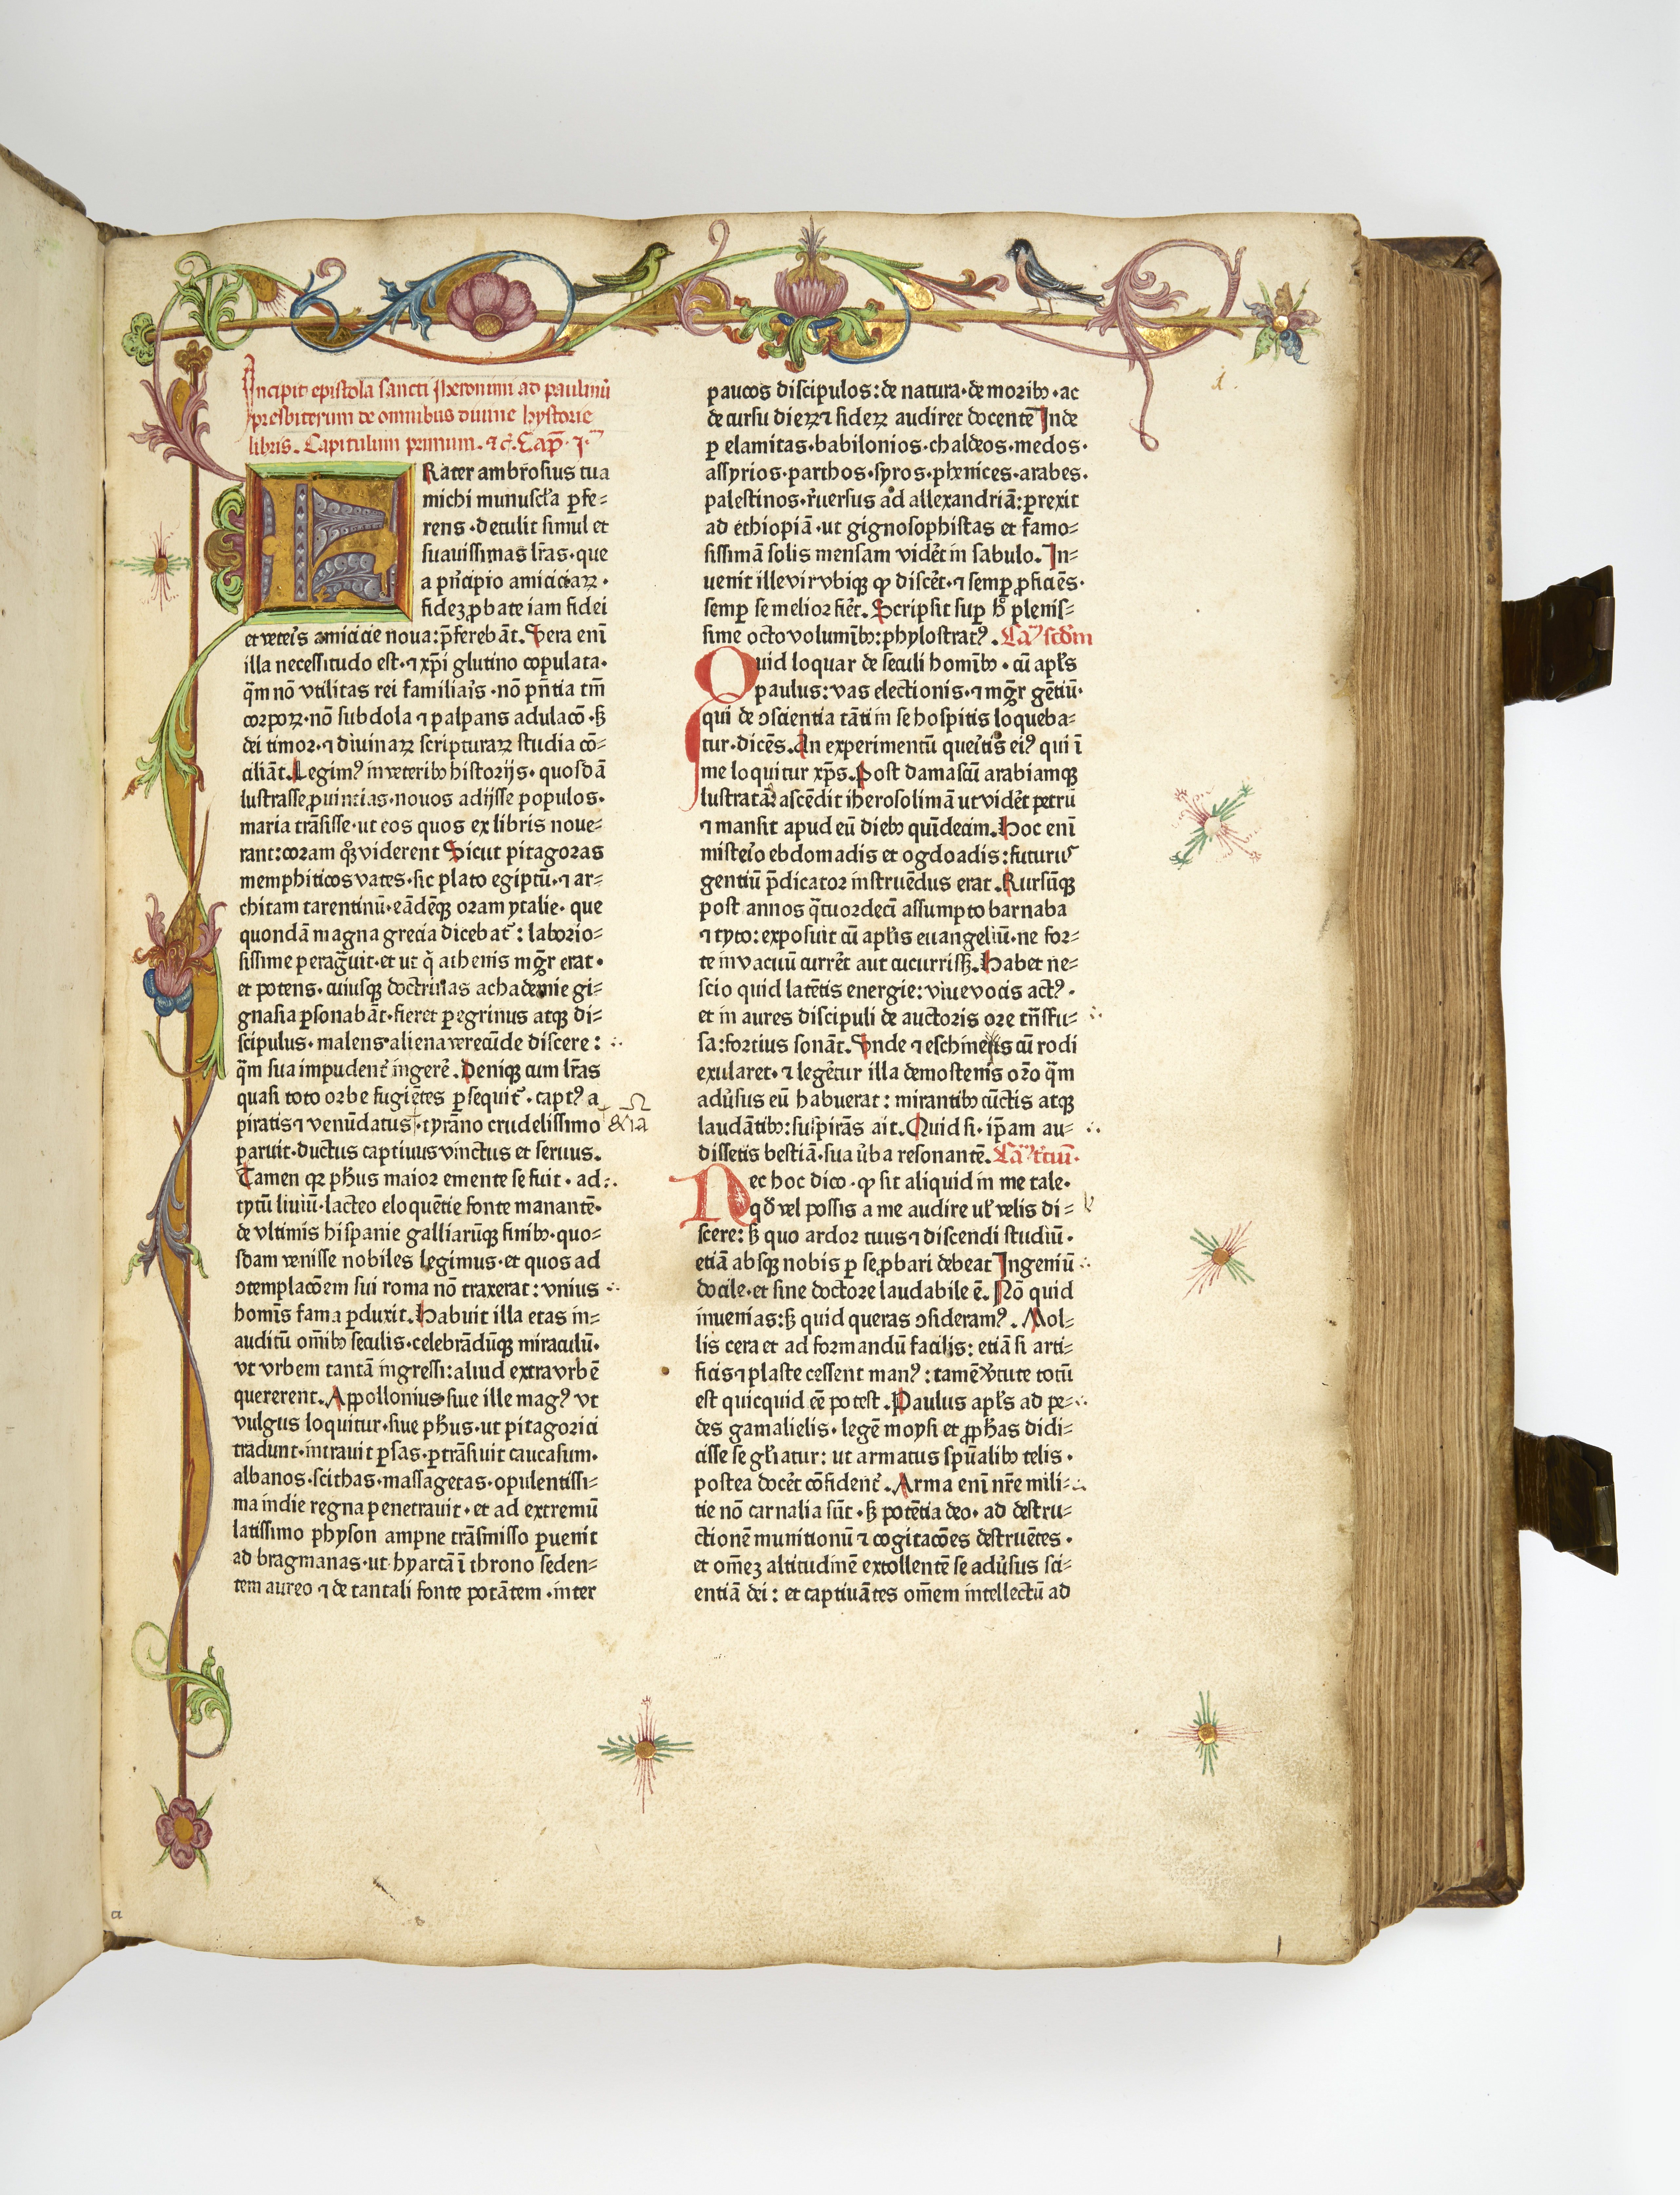 Incipit epistola sancti Iheronimi ad paulinū
presbiterum de omnibus diuine hystorie
libris. Capitulum primum. ⁊ c̄. Cap̄. 1.
FRater ambrosius tua
michi munuscl'a ꝑfe⸗
rens·detulit simul et
suauissimas lr̄as·que
a pn̄cipio amiciciaꝝ·
fidez ꝓbate iam fidei
et veteris amicicie noua: p̄ferebāt. Vera enī
illa necessitudo est·⁊ xp̄i glutino copulata·
qm̄ nō vtilitas rei familiaris·nō pn̄tia tm̄
corpoꝝ·nō subdola ⁊ palpans adulacō·sꝫ
dei timor·⁊ diuinaꝝ scripturaꝝ studia cō⸗
ciliāt. Legimꝰ in veteribꝫ historijs·quosdā
lustrasse ꝓuincias·nouos adijsse populos·
maria trāsisse·ut eos quos ex libris noue⸗
rant: coram qͦꝫ viderent Sicut pitagoras
memphiticos vates·sic plato egiptū·⁊ ar⸗
chitam tarentinū·eādēqꝫ oram ytalie·que
quondā magna grecia dicebat᷑: laborio⸗
sissime peragrauit·et ut qͥ athenis mgr̄ erat·
et potens·cuiusqꝫ doctrinas achademie gi⸗
gnasia ꝑsonabāt·fieret ꝑegrinus atqꝫ di⸗
scipulus·malens aliena verecūde discere:
qm̄ sua impudent᷑ ingerē. Denique cum lr̄as
quasi toto orbe fugiētes ꝑsequit᷑·captꝰ a
piratis ⁊ venūdatus·tyrāno crudelissimo
paruit·ductus captiuus vinctus et seruus.
Tamen qꝛ ph̄us maior emente se fuit·ad
tytū liuiū·lacteo eloquētie fonte manantē·
de vltimis hispanie galliarūqꝫ finibꝫ·quo⸗
sdam venisse nobiles legimus·et quos ad
ↄtemplacōem sui roma nō traxerat: vnius
homīs fama ꝑduxit. Habuit illa etas in⸗
auditū om̄ibꝫ seculis·celebrādūqꝫ miraculū·
vt vrbem tantā ingressi: aliud extra vrbē
quererent. Appollonius siue ille magꝰ vt
vulgus loquitur·siue ph̄us·ut pitagorici
tradunt·intrauit ꝑsas·ꝑtrāsiuit caucasum·
albanos·scithas·massagetas·opulentissi⸗
ma indie regna penetrauit·et ad extremū
latissimo physon ampne trāsmisso ꝑuenit
ad bragmanas·ut hyartā ī throno seden⸗
tem aureo ⁊ de tantali fonte potātem·inter
paucos discipulos: de natura·de moribꝫ·ac
de cursu dieꝝ ⁊ sideꝝ audiret docentē Inde
ꝑ elamitas·babilonios·chaldeos·medos·
assyrios·parthos·syros·phenices·arabes·
palestinos·r̄uersus ad allexandriā: ꝑrexit
ad ethiopiā·ut gignosophistas et famo⸗
sissimā solis mensam videt᷑ in sabulo. In⸗
uenit ille vir vbiqꝫ qͩ discēt·⁊ semꝑ ꝓficiēs·
semꝑ se melior fiēt. Scripsit suꝑ hͦ plenis⸗
sime octo volumībꝫ: phylostratꝰ. Cam̄ scdm̄
Quid loquar de seculi homībꝫ·cū apl's
paulus: vas electionis·⁊ mgr̄ gētiū·
qui de ↄscientia tāti in se hospitis loqueba⸗
tur·dicēs. An experimentū queritis eiꝰ qui ī
me loquitur xp̄s. Post damascū arabiamqꝫ
lustratā: ascēdit iherosolimā ut vidēt petrū
⁊ mansit apud eū diebꝫ quīdecim. Hoc enī
misterio ebdomadis et ogdoadis: futurus
gentiū p̄dicator instruēdus erat. Rursūqꝫ
post annos qͣtuordeci assumpto barnaba
⁊ tyto: exposuit cū apl'is euangeliū·ne for⸗
te in vacuū currēt aut cucurrissꝫ. Habet ne⸗
scio quid latētis energie: viue vocis actꝰ·
et in aures discipuli de auctoris ore tn̄sfu⸗
sa: fortius sonāt. Vnde ⁊ eschines cū rodi
exularet·⁊ legēt᷑ur illa demostenis orō qm̄
aduersus eū habuerat: mirantibꝫ cūctis atqꝫ
laudātibꝫ: suspirās ait. Quid si·ip̄am au⸗
dissetis bestiā·sua verba resonantē. Cam̄ tciū·
Nec hoc dico·qͩ sit aliquid in me tale·
qͦd vel possis a me audire ul' velis di⸗
scere: sꝫ quo ardor tuus ⁊ discendi studiū·
etiā absqꝫ nobis ꝑ se ꝓbari debeat Ingeniū
docile·et sine doctore laudabile ē. Nō quid
inuenias: sꝫ quid queras ↄsideramꝰ. Mol⸗
lis cera et ad formandū facilis: etiā si arti⸗
ficis ⁊ plaste cessent manꝰ: tamē v̓tute totū
est quicquid eē potest. Paulus apl's ad pe⸗
des gamalielis·legē moysi et ꝓph̄as didi⸗
cisse se gl'iatur: ut armatus sp̄ualibꝫ telis·
postea docēt cōfident᷑. Arma enī nr̄e mili⸗
tie nō carnalia sūt·sꝫ potētia deo·ad destru⸗
ctionē munitionū ⁊ cogitacōes destruētes·
et om̄eꝫ altitudinē extollentē se aduersus sci⸗
entiā dei: et captiuātes om̄em intellectū ad